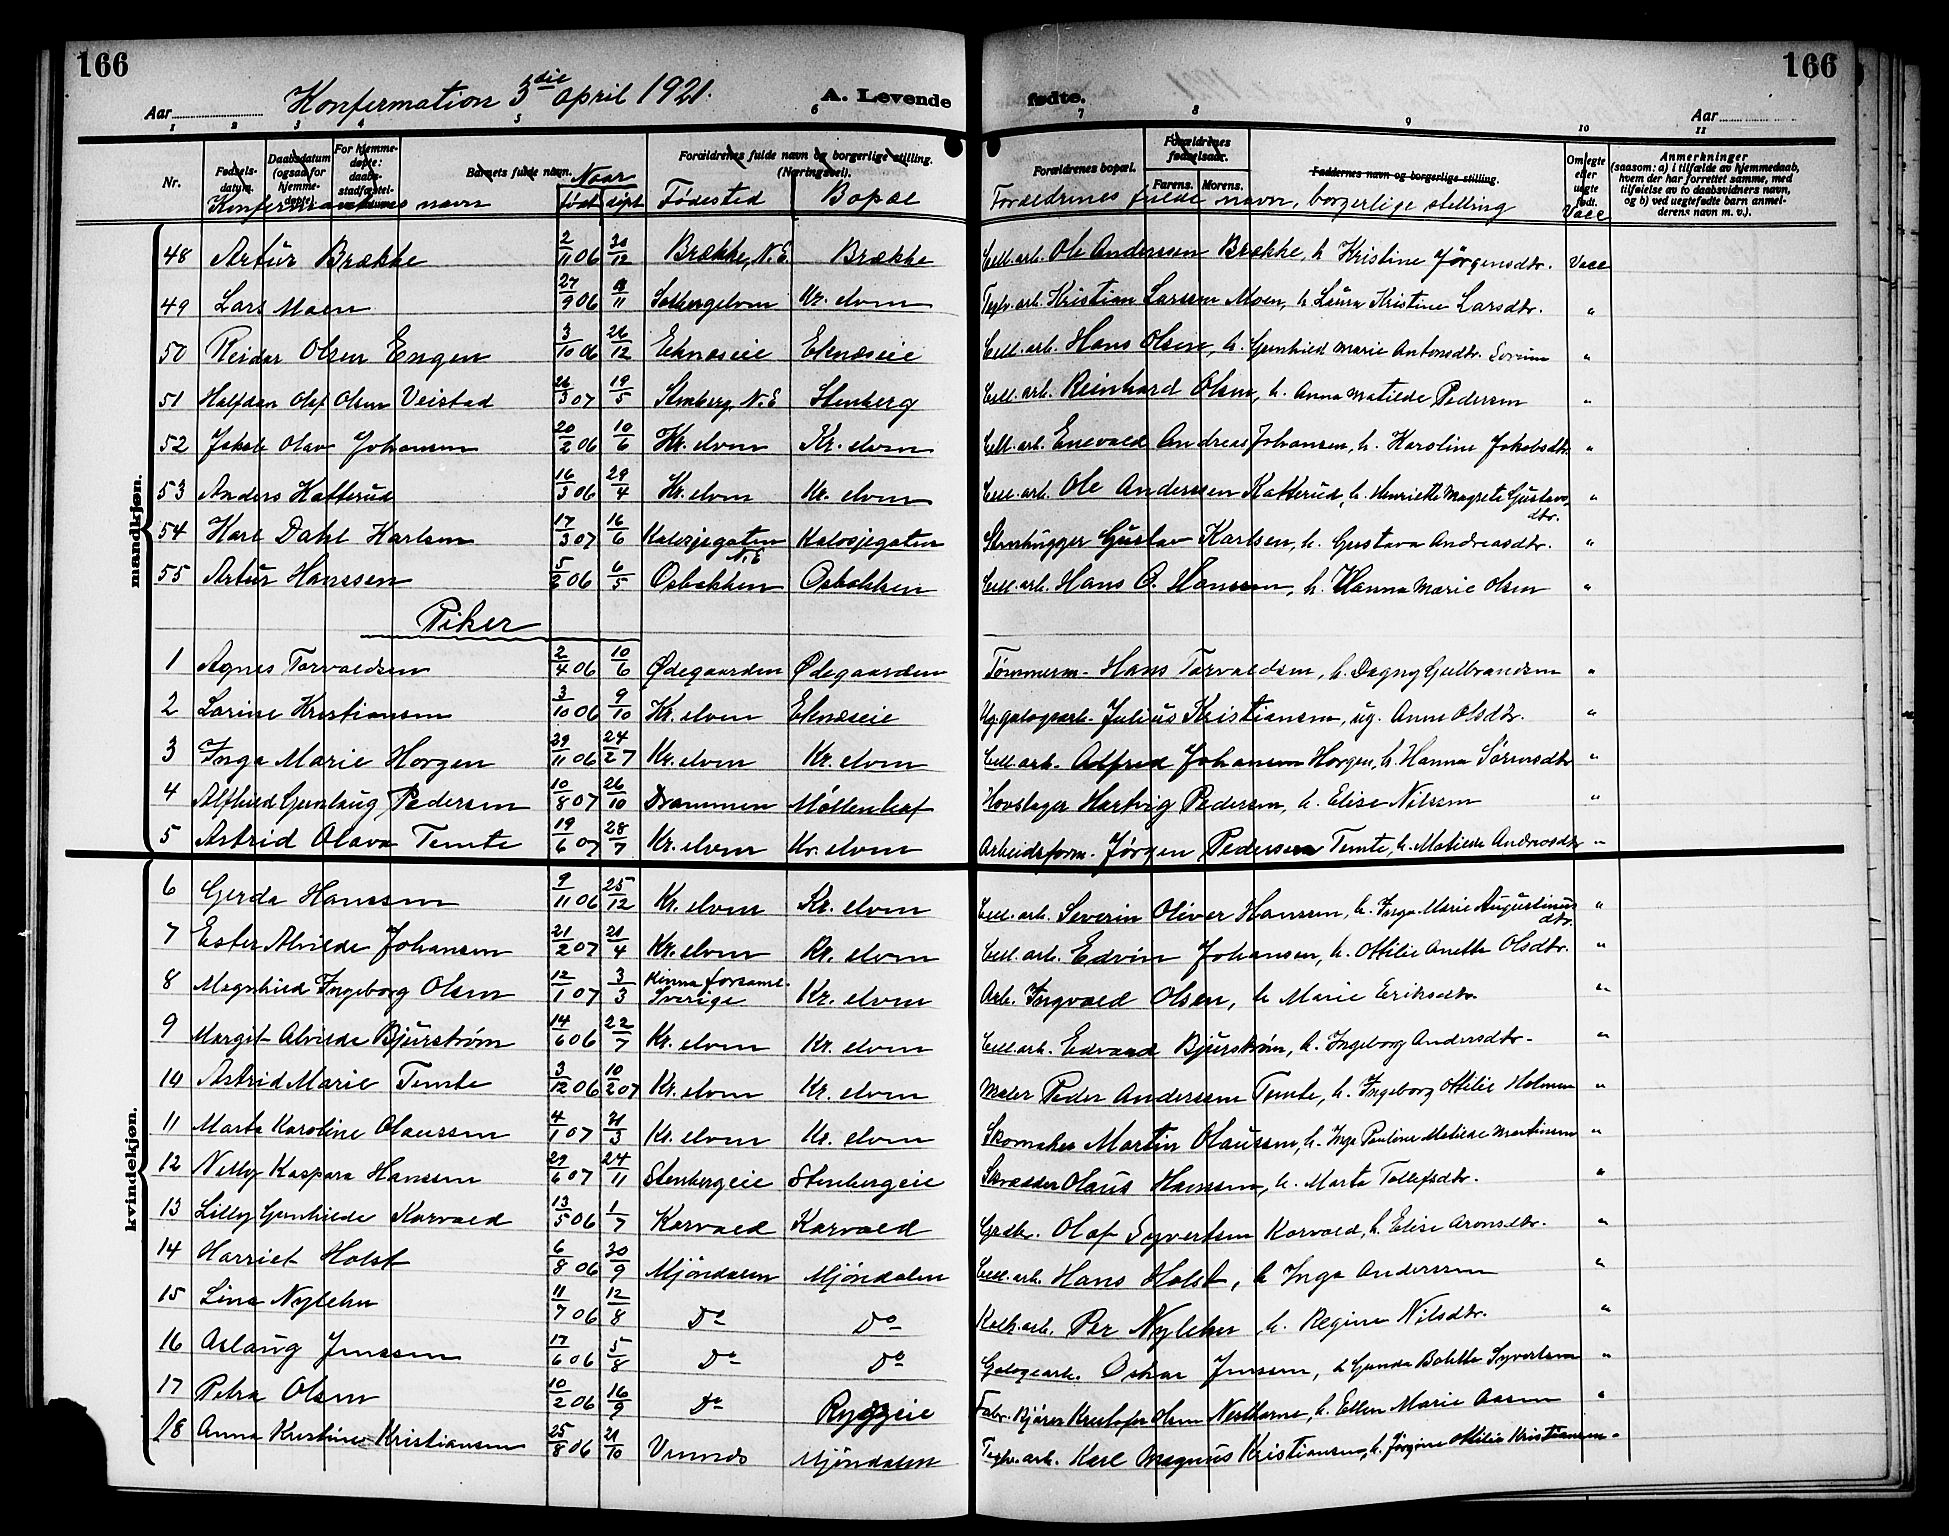 166
Konfirmation 3die april 1921.
Aar
A. Levende
1 2 3 4 5 6
Nr.
Fødsels-datum.
Daabsdatum (ogsaa for hjemme-døpte).
For hjemme-døpte: daabs-stadfæstel-
Barnets fulde navn.
Forældrenes fulde navn og borgerlige stilling. (Næringsvei).
Konfirmantenes navn
Naar født døpt
Fødested
Bopæl
mandkjøn.
48 Artur Brække 2/11 06 30/12 Brække, N.E. Brække
49 Lars Moen 27/9 06 /11 Solbergelven Kr. elven
50 Reidar Olsen Engen 3/10 06 26/12 Eknæseie Eknæseie
51 Halfdan Olaf Olsen Veistad 26/3 07 19/5 Stenberg, N.E Stenberg
52 Jakob Olav Johansen 20/2 06 10/6 Kr. elven Kr. elven
53 Anders Katterud 16/3 06 29/4 Kr. elven Kr. elven
54 Karl Dahl Karlsen 17/3 07 16/6 Kalosjegaten N.E Kalosjegaten
55 Artur Hanssen 5/2 06 6/5 Osbakken Osbakken
Piker
1 Agnes Torvaldsen 2/4 06 10/6 Ødegaarden Ødegaarden
2 Larine Kristiansen 3/10 06 9/10 Kr. elven Eknæseie
3 Inga Marie Horgen 29/11 06 24/2 7 Kr. elven Kr. elven
4 Alfhild Gunlaug Pedersen 10/8 07 26/10 Drammen Møllenhof
5 Astrid Olava Temte 19/6 07 28/7 Kr. elven Kr. elven
kvindekjøn.
6 Gerda Hanssen 9/11 06 25/12 Kr. elven Kr. elven
7 Ester Alvilde Johansen 21/2 07 21/4 Kr. elven Kr. elven
8 Magnhild Ingeborg Olsen 12/1 07 3/3 Kinna forsaml. Sverige Kr. elven
9 Margit Alvilde Bjurstrøm 14/6 06 22/7 Kr. elven Kr. elven
10 Astrid Marie Temte 3/12 06 10/2 07 Kr. elven Kr. elven
11 Marta Karoline Olaussen 4/1 07 /3 Kr. elven Kr. elven
12 Nelly Kaspara Hanssen 29/6 07 24/11 Stenbergeie Stenbergeie
13 Lilly Gunhilde Korvald 13/5 06 1/7 Korvald Korvald
14 Harriet Holst 6/8 06 30/9 Mjøndalen Mjøndalen
15 Lina Nylehn 11/7 06 12/8 Do Do
16 Aslaug Jenssen 17/6 06 5/8 Do Do
17 Petra Olsen 10/2 06 16/9 Do Ryggeie
18 Anna Kristine Kristiansen 25/8 06 21/10 Vinnes Mjøndalen
166
fødte.
Aar
7 8 9 10 11
Forældrenes bopæl.
Forældrenes fødselsaar.
Farens. Morens.
Faddernes navn og borgerlige stilling.
Om egte eller uegte født.
Anmerkninger
(saasom: a) i tilfælde av hjemmedaab, hvem der har forrettet samme, med tilføielse av to daabsvidners navn, og b) ved uegtefødte barn anmelderens navn m. v.).
Forældrenes fulde navn, borgerlige stilling
Vacc
Cell. arb. Ole Anderssen Brække, h. Kristine Jørgensdtr. Vacc
Teglv. arb. Kristian Larssen Moen, h. Laura Kristine Larsdtr. "
Cell. arb. Hans Olsen, h. Gunhild Marie Antonsdtr. Sorum "
Cell. arb. Reinhard Olsen, h. Anna Matilde Pedersen "
Cell. arb. Enevald Andreas Johansen, h. Karoline Jakobsdtr. "
Cell. arb. Ole Anderssen Katterud, h. Henriette Magrete Gustavsdtr. "
Stenhugger Gustav Karlsen, h. Gustava Andreasdtr. "
Cell. arb. Hans O. Hanssen, h. Hanna Marie Olsen "
Tømmerm. Hans Torvaldsen, h. Dagny Gulbrandsen "
Ug. galogearb. Julius Kristiansen, ug. Anne Olsdtr. "
Cell. arb. Alfred Johansen Horgen, h. Hanna Sørensdtr "
Hovslager Hartvig Pedersen, h. Elise Nilssen "
Arbeidsform. Jørgen Pedersen Temte, h. Matilde Andreasdtr "
Cell. arb. Severin Oliver Hanssen, h. Inga Marie Augustinusdtr. "
Cell. arb. Edvin Johansen, h. Ottilie Anette Olsdtr. "
Arb. Ingvald Olsen, h Marie Eriksdtr. "
Cell. arb. Edvard Bjurstrøm, h. Ingeborg Andersdtr. "
Maler Peder Anderssen Temte, h. Ingeborg Ottilie Holmen "
Skomaker Martin Olaussen, h. Inga Pauline Matilde Martinsen "
Skrædder Olaus Hanssen, h. Marta Tollefsdtr. "
Grdbr. Olaf Syvertsen Korvald, h. Elise Aronsdtr. "
Cell. arb. Hans Holst, h Inga Anderssen "
Kalk. arb. Per Nylehn, h. Regine Nilsdtr. "
Galogearb. Oskar Jenssen, h Gunda Bolette Syvertsen "
Fabr. Kristofer Olsen, h. Ellen Marie Aasen "
Teglv. arb. Karl Magnus Kristiansen, h. Jørgine Ottilie Kristiansen "